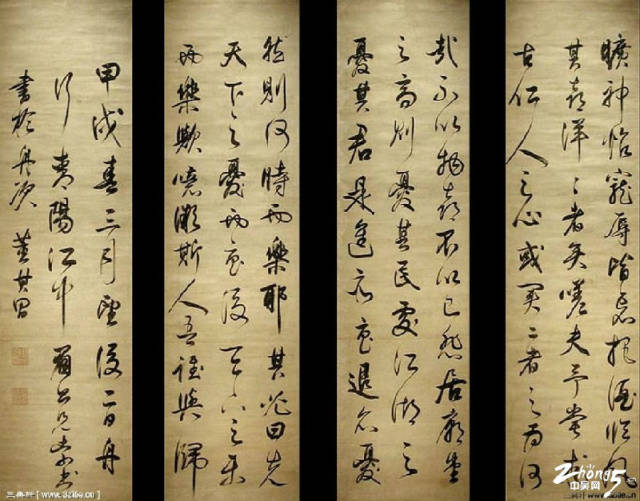 曠神怡寵辱皆忘把酒臨風
其喜洋〻者矣嗟夫予嘗求
古仁人之心或異二者之為何
哉不以物喜不以己悲居廟堂
之高則憂其民處江湖之
憂其君是進亦憂退亦憂
然則何時而樂耶其必曰先
天下之憂而憂後天下之樂
而樂歟噫微斯人吾誰與歸
甲戌春三月望後二日舟
行青陽江中
書於舟次 董其昌
Zhong5
中吴网